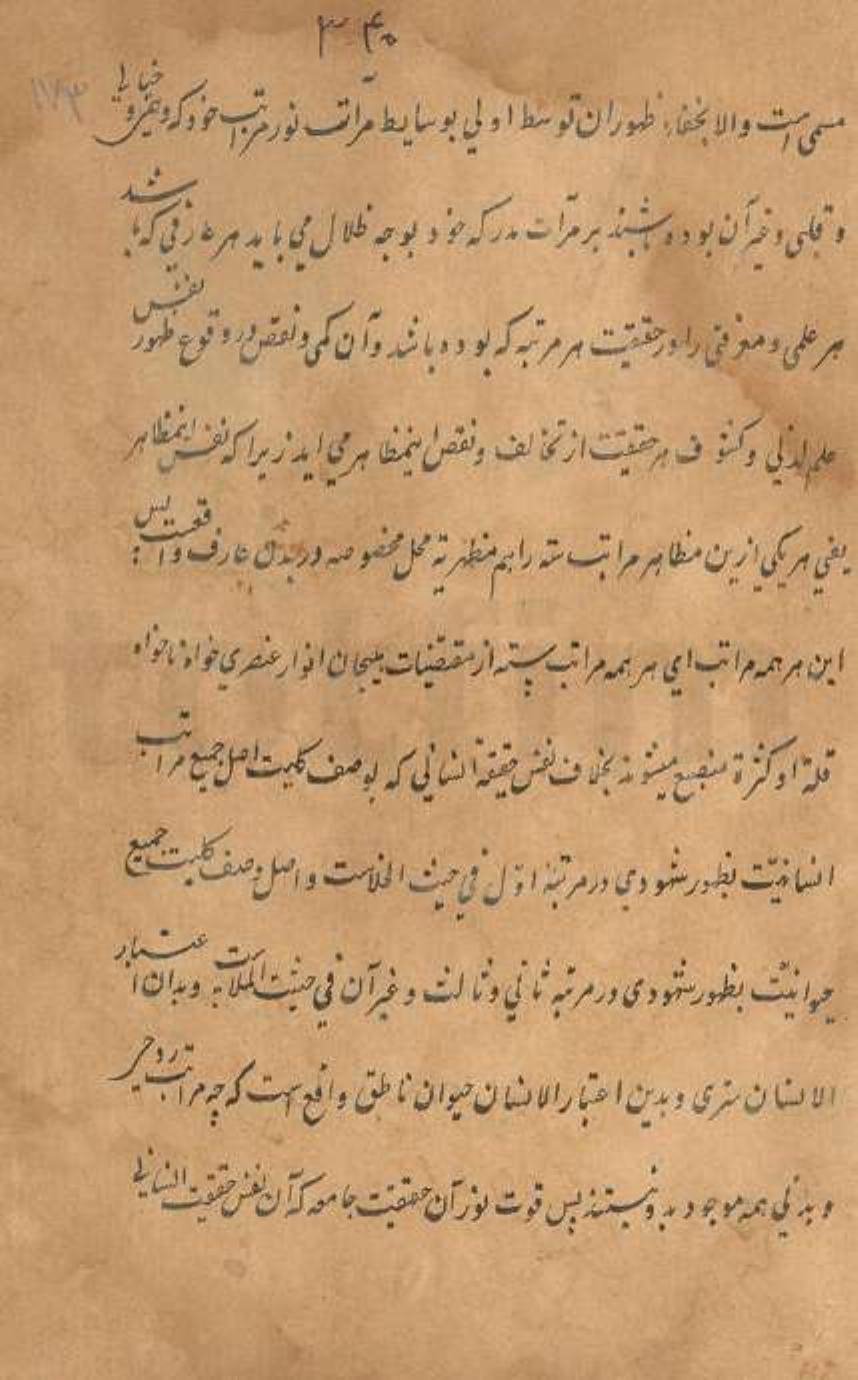 ۳۴۰
۱۱۷۳
مسمی است والا بخفاء ظهوران توسط اولی بوسایط مرآتب نور مراتب خود که وغیر و خیالی
و قلبی وغیر آن بوده باشند بر مرآت مدرکه خود بوجه ظلال می باید هر عارفی که باشد
هر علمی ومعرفتی را در حقیقت هر مرتبه که بوده باشد وآن کمی ونقص در وقوع ظهور نفس
علم لدنی وکشوف هر حقیقت از تخالف ونقص اینمظاهر می اید زیرا که نفس اینمظاهر
یعنی هر یکی ازین مظاهر مراتب سته را هم مظهریة محل مخصوصه در بدن عارف واقعست پس
این هر همه مراتب ای هر همه مراتب سته از مقتضیات هیجان انوار عنصری خواه ناخواه
قلة او کثرة منصبغ میشوند بخلاف نفس حقیقة انسانی که بوصف کلیت اصل جمیع مراتب
انسانیّت بظهور شهودی در مرتبهٔ اوّل فی حیث الخلاست واصل وصف کلیت جمیع
حیوانیّت بظهور شهودی در مرتبه ثانی وثالث وغیر آن فی حیث الملات وبدان اعتبار
الانسان سری وبدین اعتبار الانسان حیوان ناطق واقع است که چه مراتب روحی
وبدنی همه موجود بدونستند پس قوت نور آن حقیقت جامعه که آن نفس حقیقت انسانی